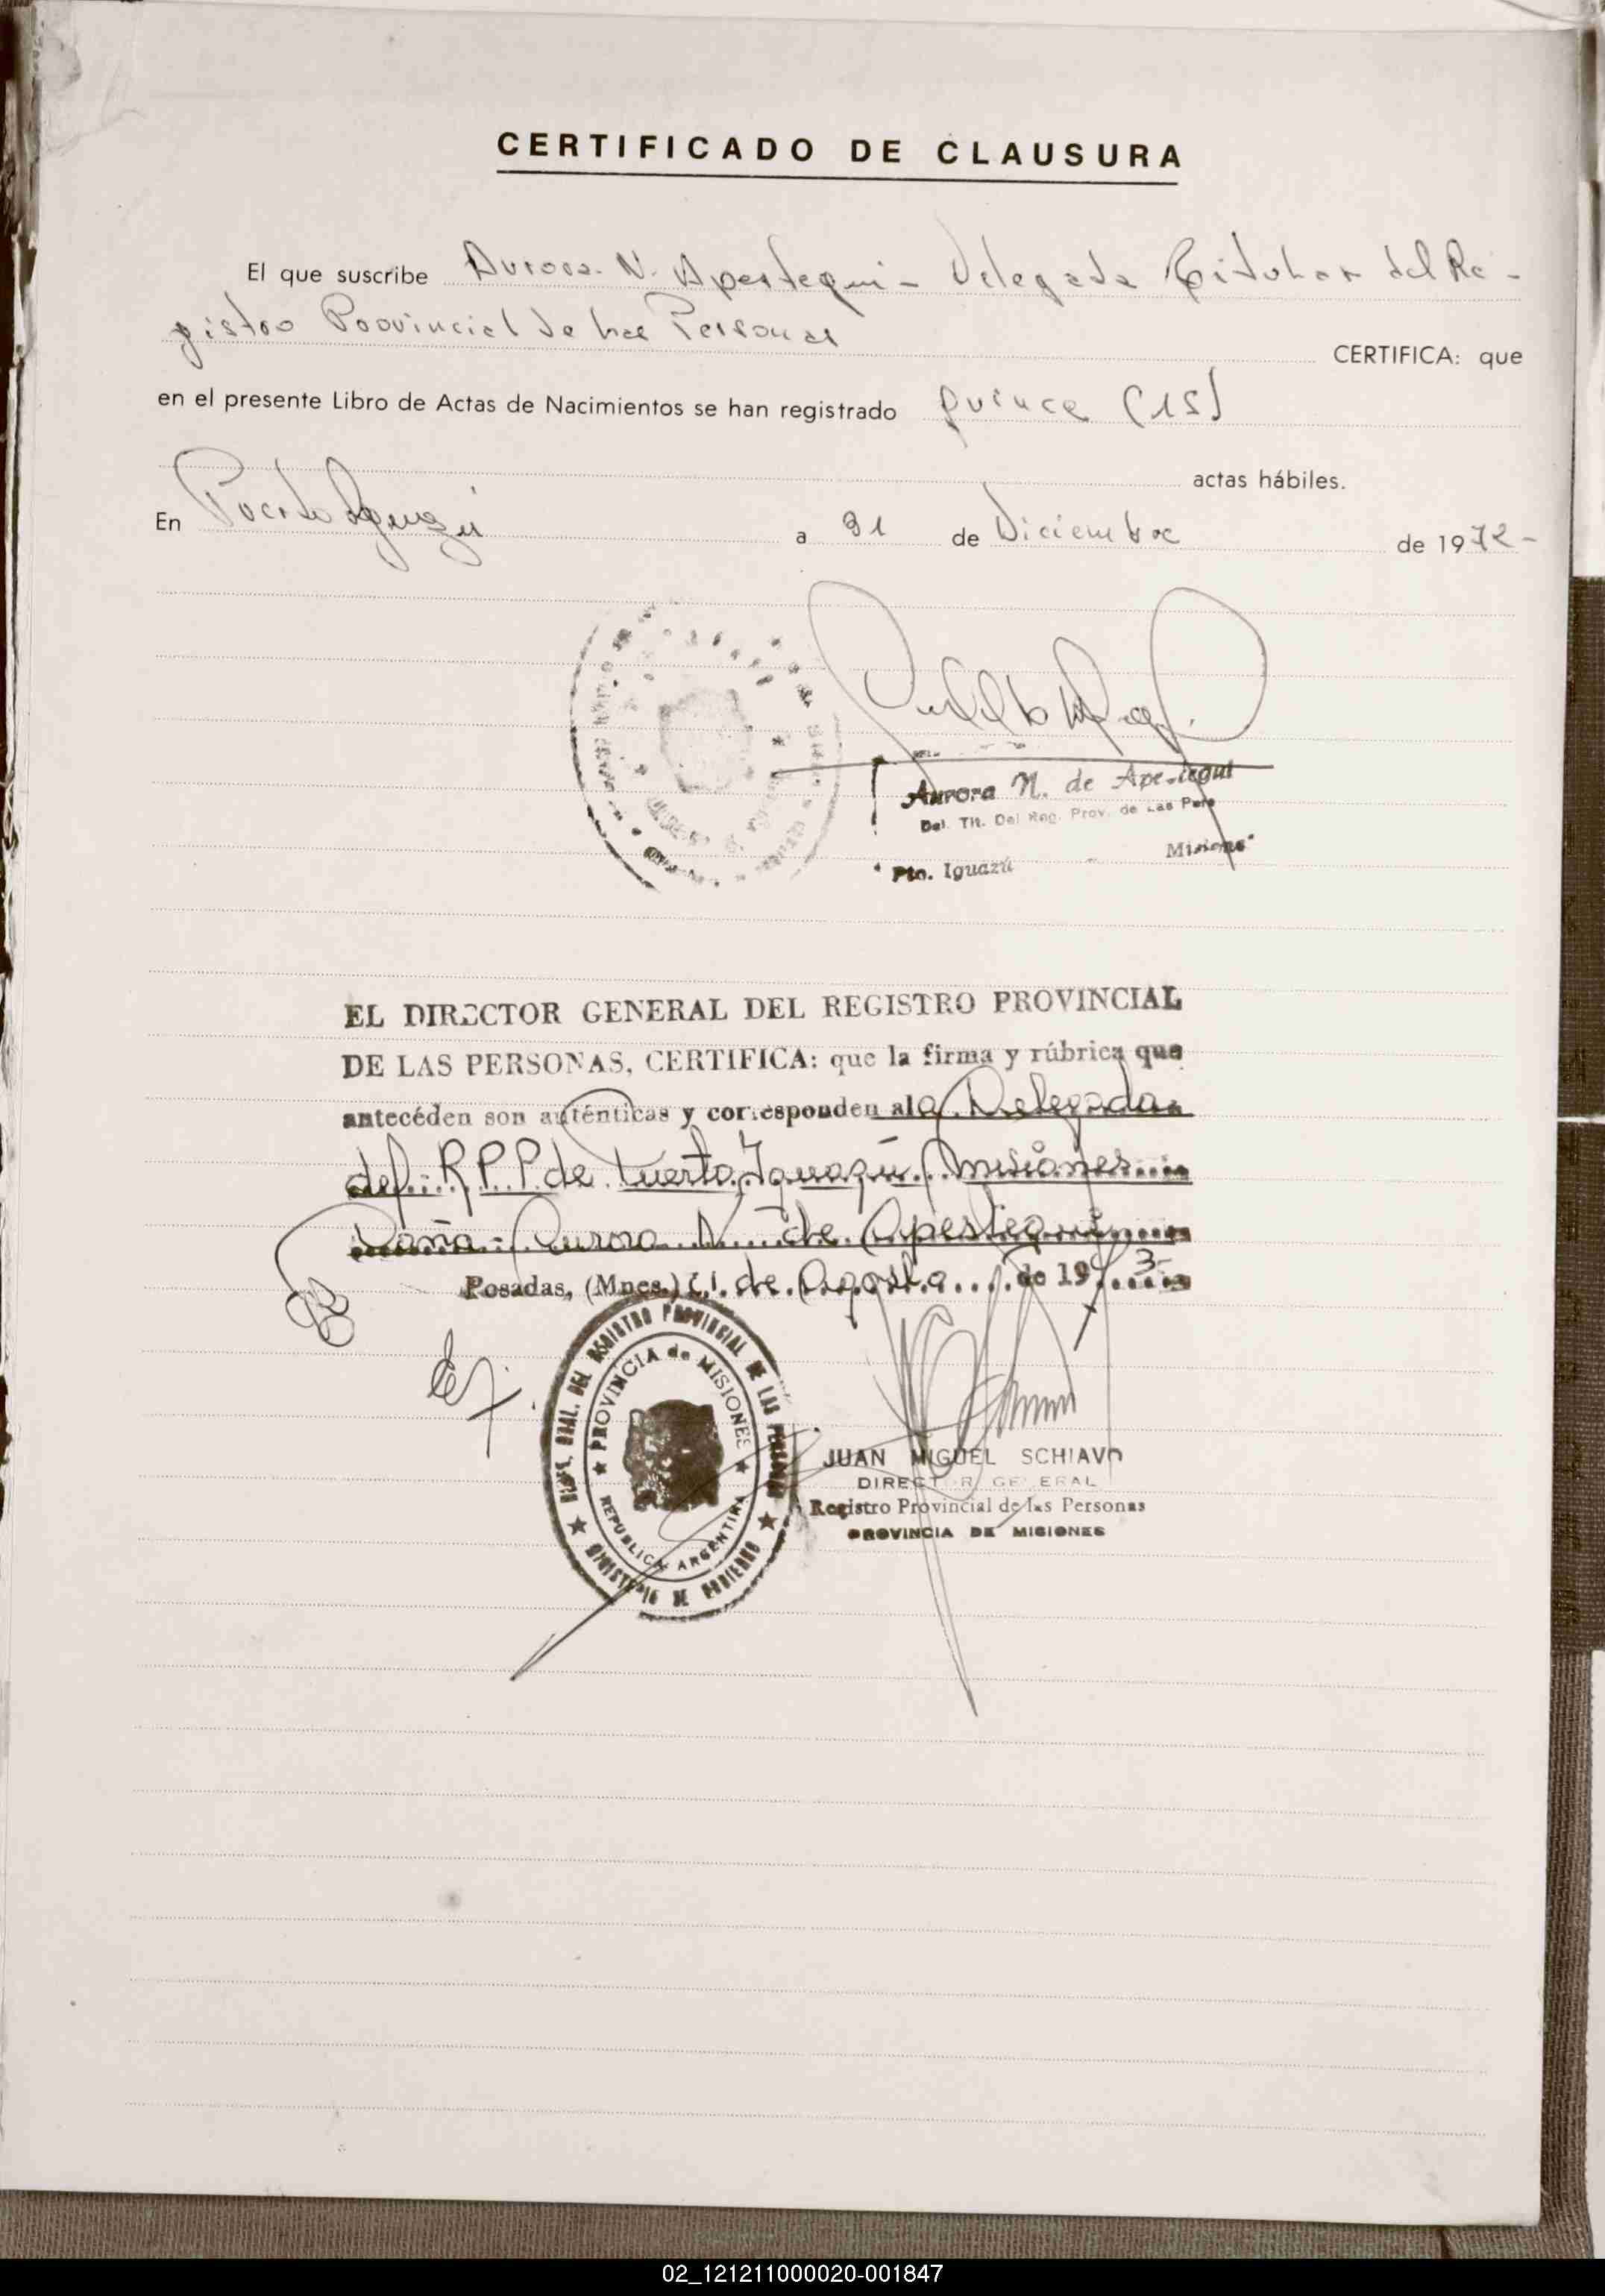 CERTIFICADO DE CLAUSURA
El que suscribe Aurora N. Apestequi - Delegada Titular del Re-
gistro Provincial de las Personas
CERTIFICA: que
en el presente Libro de Actas de Nacimientos se han registrado quince (15)
actas hábiles.
En Puerto Iguazú a 31 de Diciembre de 1972-
Aurora N. de Apestegui
Del. Tit. Del Reg. Prov. de Las Pers
Pto. Iguazú - Misiones
EL DIRECTOR GENERAL DEL REGISTRO PROVINCIAL
DE LAS PERSONAS, CERTIFICA: que la firma y rúbrica que
antecéden son auténticas y corresponden al a Delegada
del R.P.P. de Puerto Iguazú Misiones
Doña Aurora N. de Apestegui
Posadas, (Mnes.) 21 de Agosto de 1973-
DIRC. GRAL. DEL REGISTRO PROVINCIAL DE LAS PERSONAS
PROVINCIA de MISIONES
REPUBLICA ARGENTINA
MINISTERIO DE GOBIERNO
JUAN MIGUEL SCHIAVO
DIRECTOR GENERAL
Registro Provincial de las Personas
PROVINCIA DE MISIONES
02_121211000020-001847